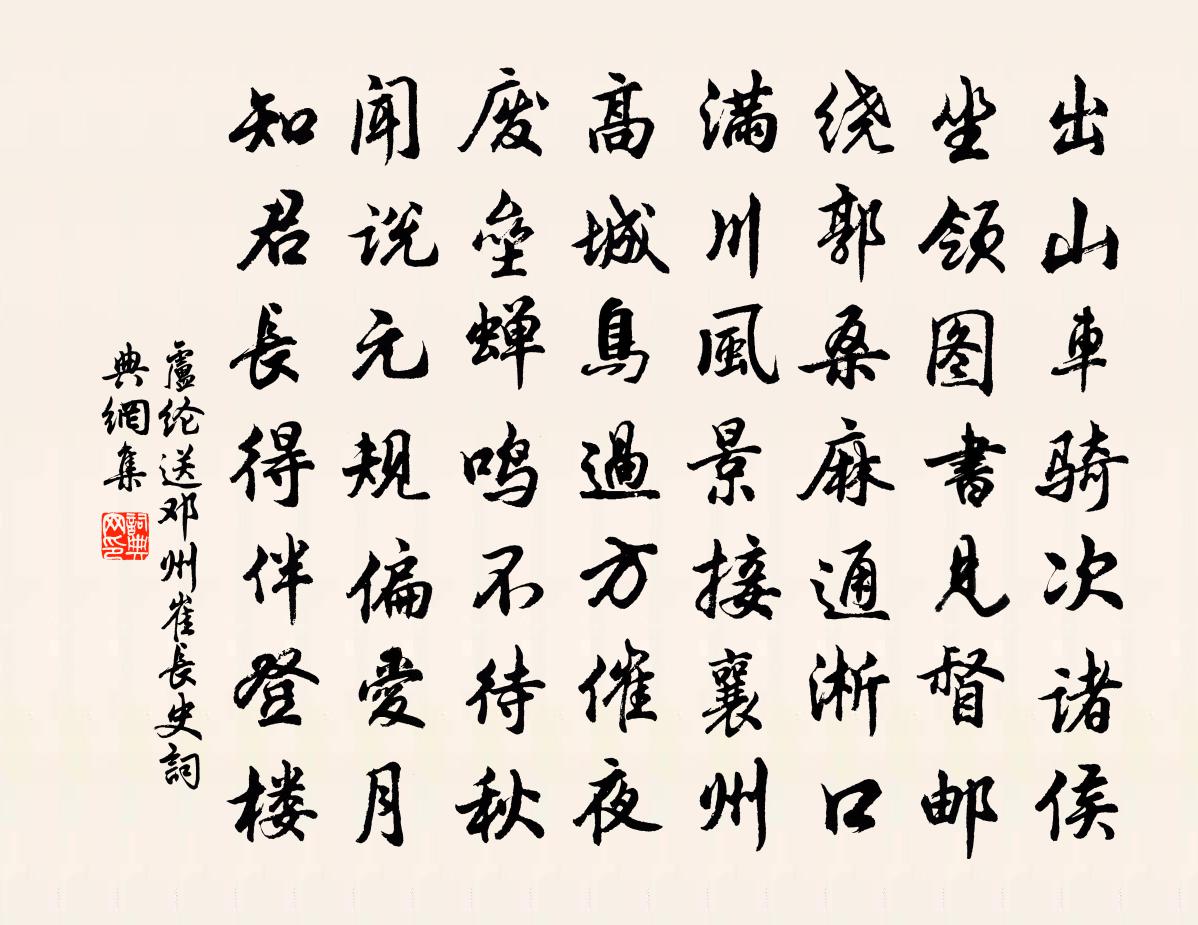 出山車骑次诸侯
坐领图書見督邮
绕郭桑麻通淅口
满川風景接襄州
高城鳥過方催夜
废壘蝉鸣不待秋
闻说元规偏爱月
知君長得伴登楼
盧纶送邓州崔長史詞
典網集
詞典
网印